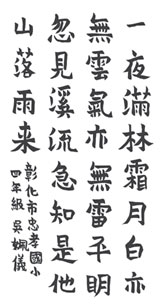 一夜滿林霜月白亦
無雲氣亦無雷平明
忽見溪流急知是他
山落雨来
彰化市忠孝國小
四年級 吳姵儀